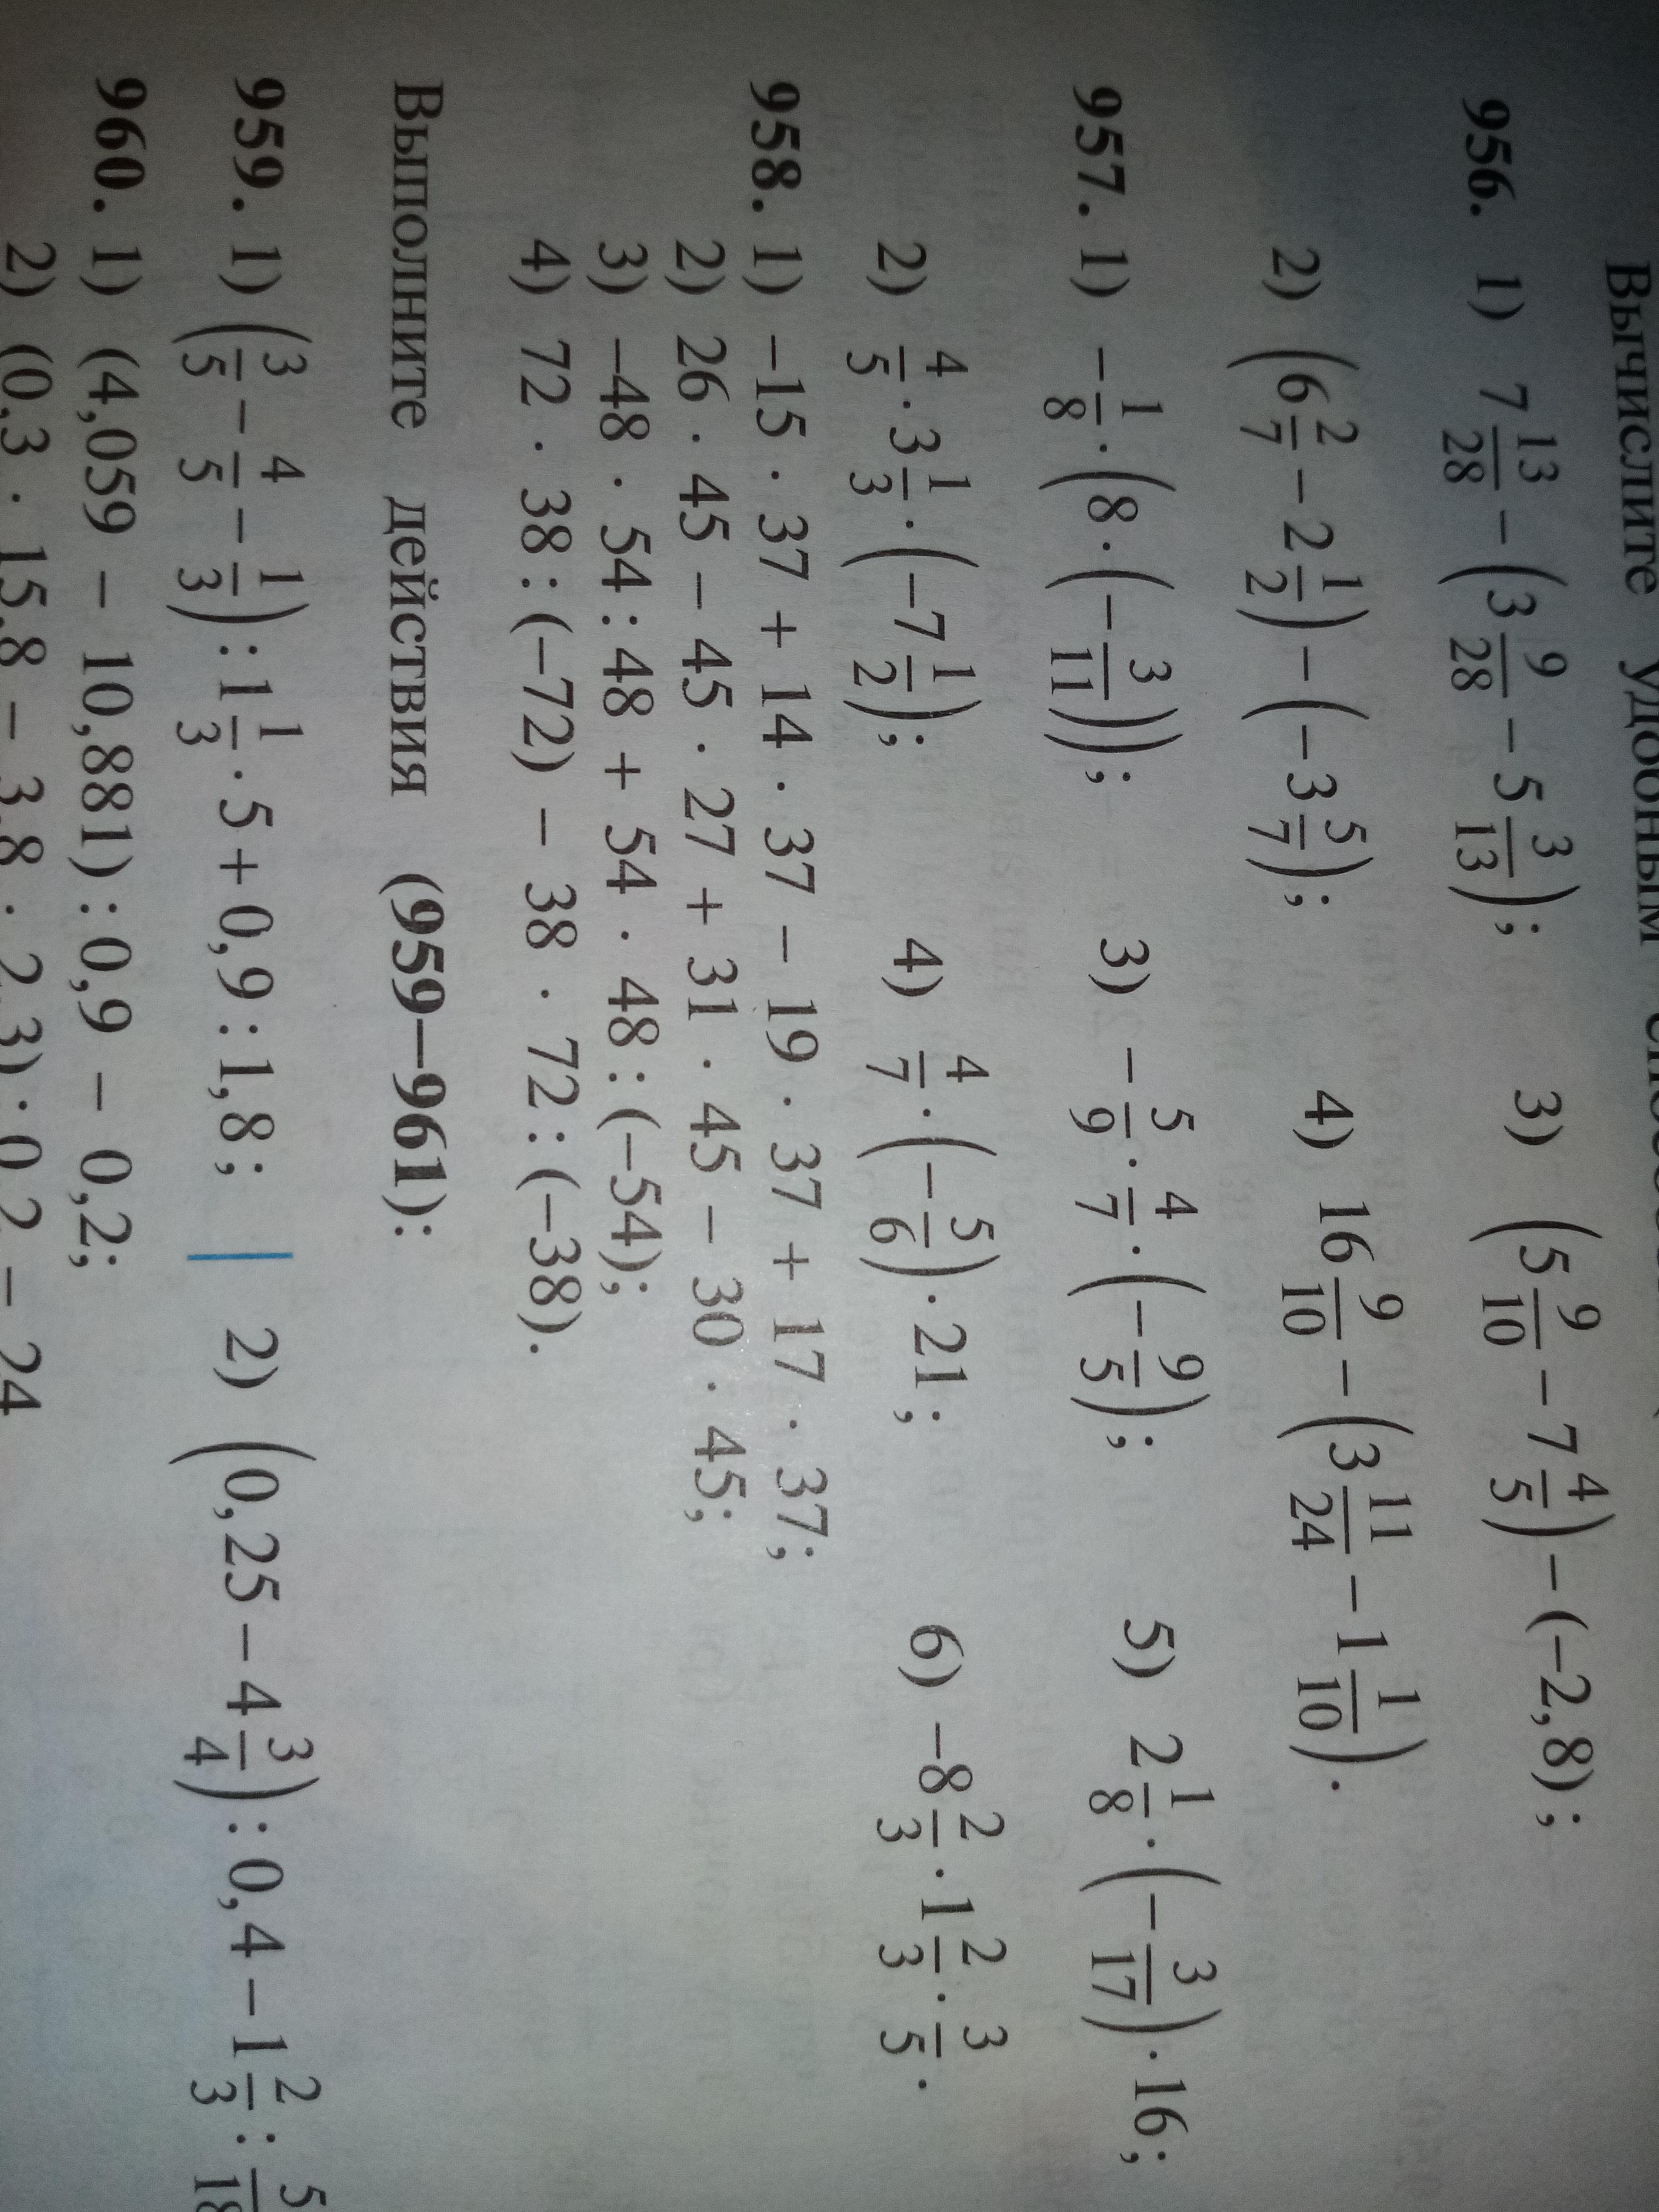 Вычислите удобным
956. 1) 7 13/28 − (3 9/28 − 5 3/13); 3) (5 9/10 − 7 4/5) − (−2,8);
2) (6 2/7 − 2 1/2) − (−3 5/7); 4) 16 9/10 − (3 11/24 − 1 1/10).
957. 1) −1/8 · (8 · (−3/11)); 3) −5/9 · 4/7 · (−9/5); 5) 2 1/8 · (−3/17) · 16;
2) 4/5 · 3 1/3 · (−7 1/2); 4) 4/7 · (−5/6) · 21; 6) −8 2/3 · 1 2/3 · 3/5.
958. 1) −15 · 37 + 14 · 37 − 19 · 37 + 17 · 37;
2) 26 · 45 − 45 · 27 + 31 · 45 − 30 · 45;
3) −48 · 54 : 48 + 54 · 48 : (−54);
4) 72 · 38 : (−72) − 38 · 72 : (−38).
Выполните действия (959—961):
959. 1) (3/5 − 4/5 − 1/3) : 1 1/3 · 5 + 0,9 : 1,8; 2) (0,25 − 4 3/4) : 0,4 − 1 2/3 : 5/18
960. 1) (4,059 − 10,881) : 0,9 − 0,2;
2) (0,3 · 15,8 − 3,8 · 2,3) : 0,2 − 24